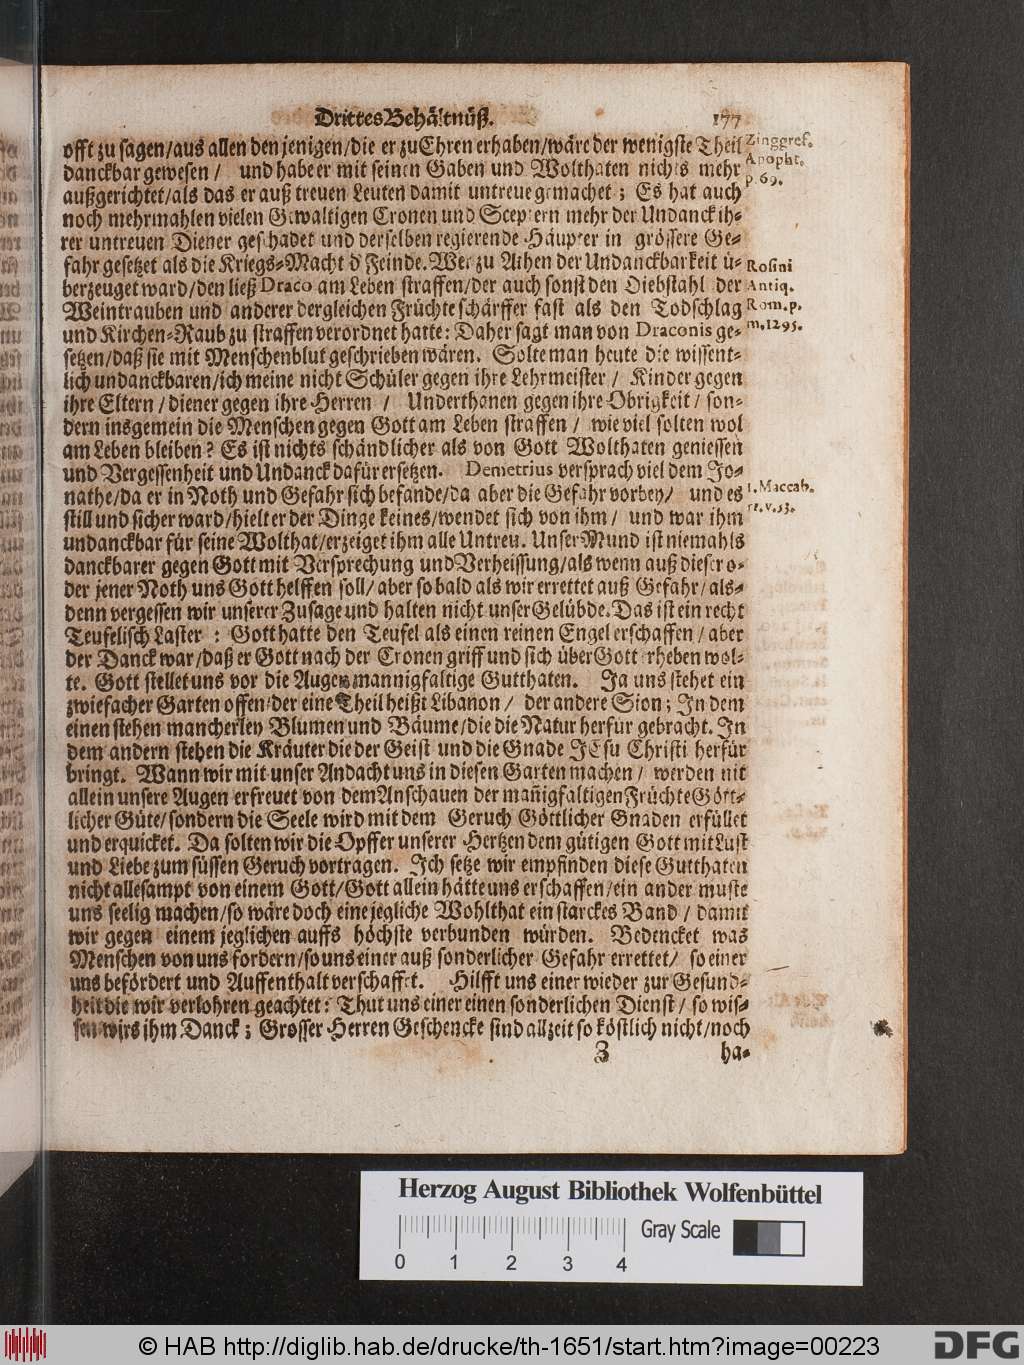 Drittes Behältnüß. 177
offt zu sagen/aus allen den jenigen/die er zu Ehren erhaben/wäre der wenigste Theil
danckbar gewesen / und habe er mit seinen Gaben und Wolthaten nichts mehr
außgerichtet/als das er auß treuen Leuten damit untreue gemachet; Es hat auch
noch mehrmahlen vielen Gewaltigen Cronen und Sceptern mehr der Undanck ih-
rer untreuen Diener geschadet und derselben regierende Häupter in grössere Ge-
fahr gesetzet als die Kriegs-Macht d Feinde. Wer zu Athen der Undanckbarkeit ü-
berzeuget ward/den ließ Draco am Leben straffen/der auch sonst den Diebstahl der
Weintrauben und anderer dergleichen Früchte schärffer fast als den Todschlag
und Kirchen-Raub zu straffen verordnet hatte: Daher sagt man von Draconis ge-
setzen/daß sie mit Menschenblut geschrieben wären. Solte man heute die wissent-
lich undanckbaren/ich meine nicht Schüler gegen ihre Lehrmeister / Kinder gegen
ihre Eltern / diener gegen ihre Herren / Underthanen gegen ihre Obrigkeit / son-
dern insgemein die Menschen gegen Gott am Leben straffen / wie viel solten wol
am Leben bleiben? Es ist nichts schändlicher als von Gott Wolthaten geniessen
und Vergessenheit und Undanck dafür ersetzen. Demetrius versprach viel dem Jo-
nathe/da er in Noth und Gefahr sich befande/da aber die Gefahr vorbey/ und es
still und sicher ward/hielt er der Dinge keines/wendet sich von ihm / und war ihm
undanckbar für seine Wolthat/erzeiget ihm alle Untreu. Unser Mund ist niemahls
danckbarer gegen Gott mit Versprechung und Verheissung/als wenn auß dieser o-
der jener Noth uns Gott helffen soll/ aber so bald als wir errettet auß Gefahr/als-
denn vergessen wir unserer Zusage und halten nicht unser Gelübde. Das ist ein recht
Teufelisch Laster : Gott hatte den Teufel als einen reinen Engel erschaffen / aber
der Danck war/daß er Gott nach der Cronen griff und sich über Gott erheben wol-
te. Gott stellet uns vor die Augen mannigfaltige Gutthaten. Ja uns stehet ein
zwiefacher Garten offen/der eine Theil heißt Libanon / der andere Sion; In dem
einen stehen mancherley Blumen und Bäume/die die Natur herfür gebracht. In
dem andern stehen die Kräuter die der Geist und die Gnade JEsu Christi herfür
bringt. Wann wir mit unser Andacht uns in diesen Garten machen / werden nit
allein unsere Augen erfreuet von dem Anschauen der mañigfaltigen Früchte Gött-
licher Güte/sondern die Seele wird mit dem Geruch Göttlicher Gnaden erfüllet
und erquicket. Da solten wir die Opffer unserer Hertzen dem gütigen Gott mit Lust
und Liebe zum süssen Geruch vortragen. Ich setze wir empfinden diese Gutthaten
nicht allesampt von einem Gott/Gott allein hätte uns erschaffen/ein ander muste
uns seelig machen/so wäre doch eine jegliche Wohlthat ein starckes Band / damit
wir gegen einem jeglichen auffs höchste verbunden würden. Bedencket was
Menschen von uns fordern/so uns einer auß sonderlicher Gefahr errettet/ so einer
uns befördert und Auffenthalt verschaffet. Hilfft uns einer wieder zur Gesund-
heit die wir verlohren geachtet: Thut uns einer einen sonderlichen Dienst / so wis-
sen wirs ihm Danck; Grosser Herren Geschencke sind allzeit so köstlich nicht/noch
Z ha-
Zinggref.
Apopht.
p. 69.
Rosini
Antiq.
Rom. p.
m. 1295.
1. Maccab.
11. v. 53.
Herzog August Bibliothek Wolfenbüttel
Gray Scale
0 1 2 3 4
© HAB http://diglib.hab.de/drucke/th-1651/start.htm?image=00223
DFG